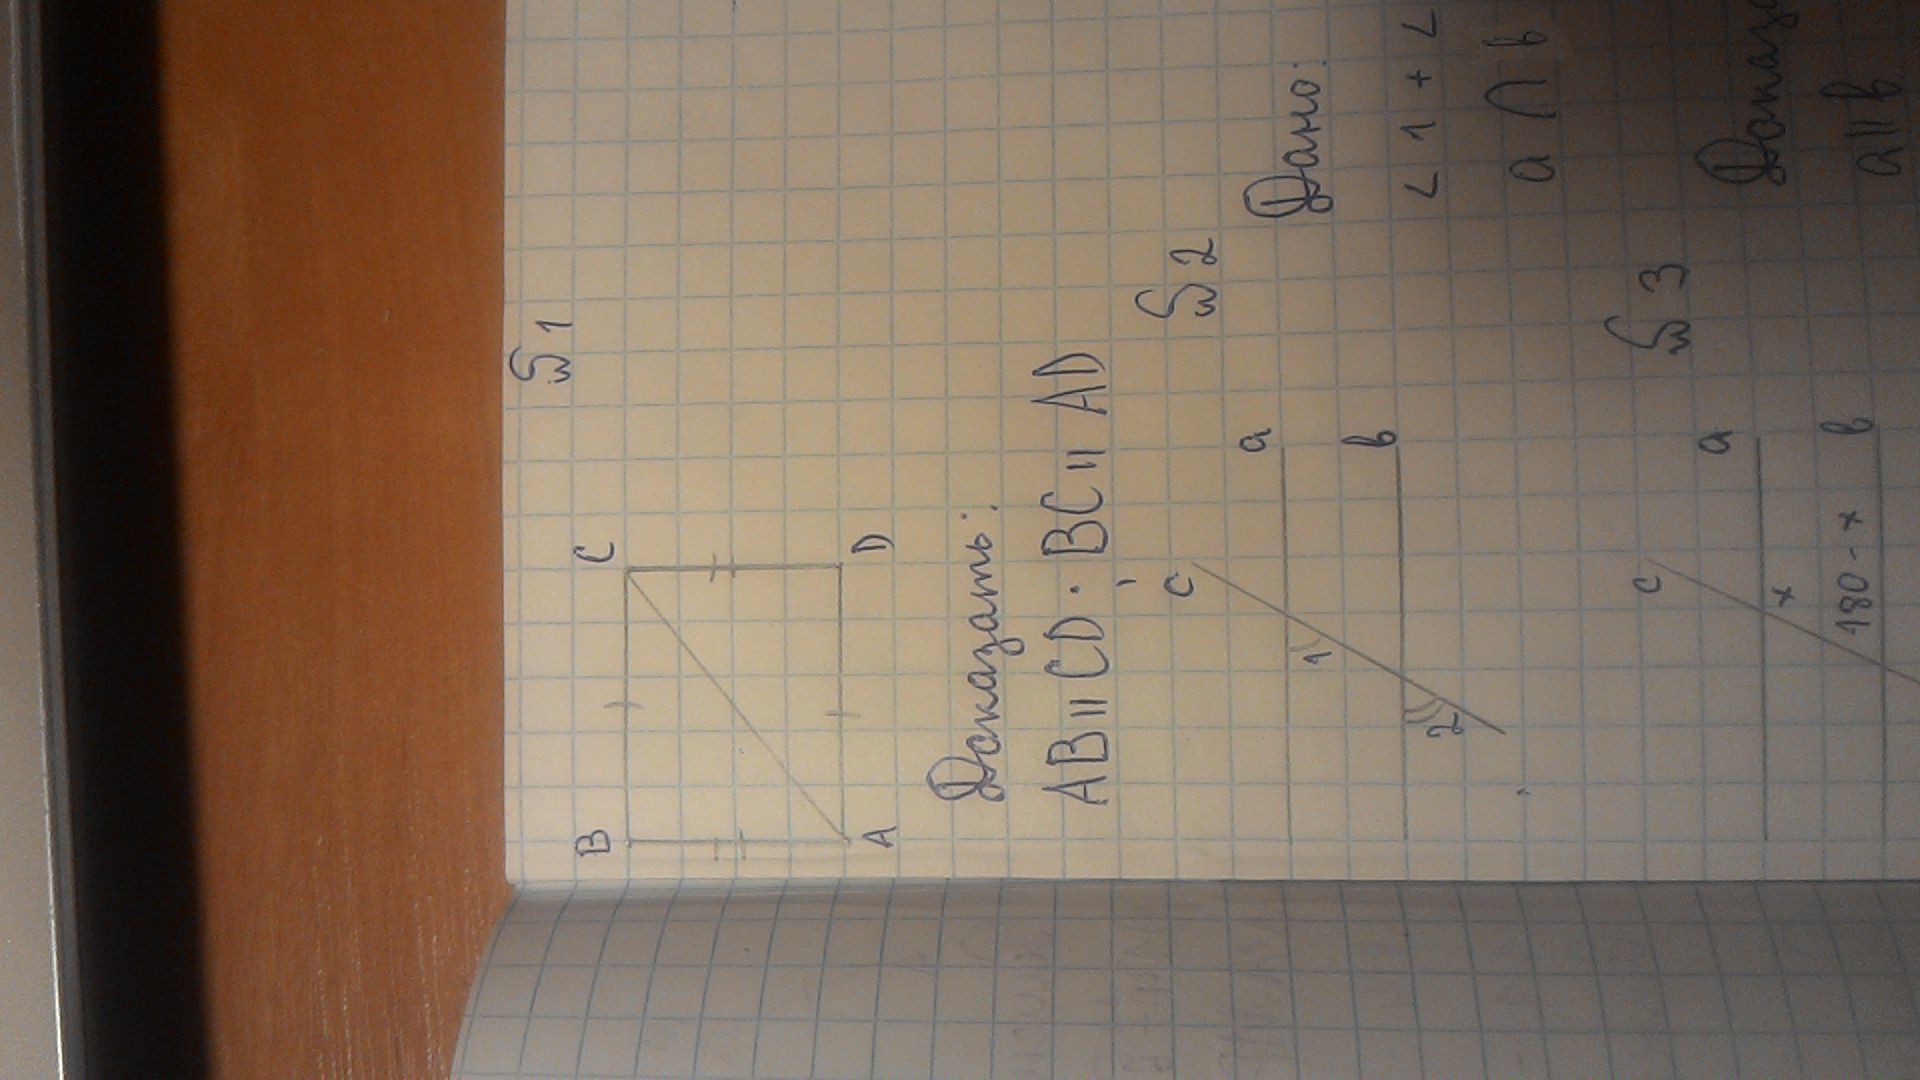 №1
B C
A D
Доказать:
AB || CD; BC || AD
№2
c
a
1
b
2
Дано:
∠1 + ∠
a ∩ b
№3
c
a
x
180 - x
b
a || b